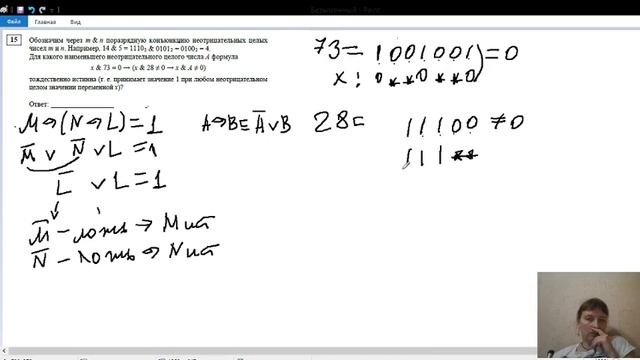 Безымянный - Paint
Файл Главная Вид
15 Обозначим через m & n поразрядную конъюнкцию неотрицательных целых
чисел m и n. Например, 14 & 5 = 1110₂ & 0101₂ = 0100₂ = 4.
Для какого наименьшего неотрицательного целого числа A формула
x & 73 = 0 → (x & 28 ≠ 0 → x & A ≠ 0)
тождественно истинна (т. е. принимает значение 1 при любом неотрицательном
целом значении переменной x)?
Ответ:
73 = 1001001) = 0
x: 0**0**0
M→(N→L)=1
A→B≡A̅∨B
28 =
11100 ≠ 0
M̅ ∨ N̅ ∨ L =1
111**
L̅ ∨ L = 1
M̅ – ложь → M ист
N̅ – ложь → N ист